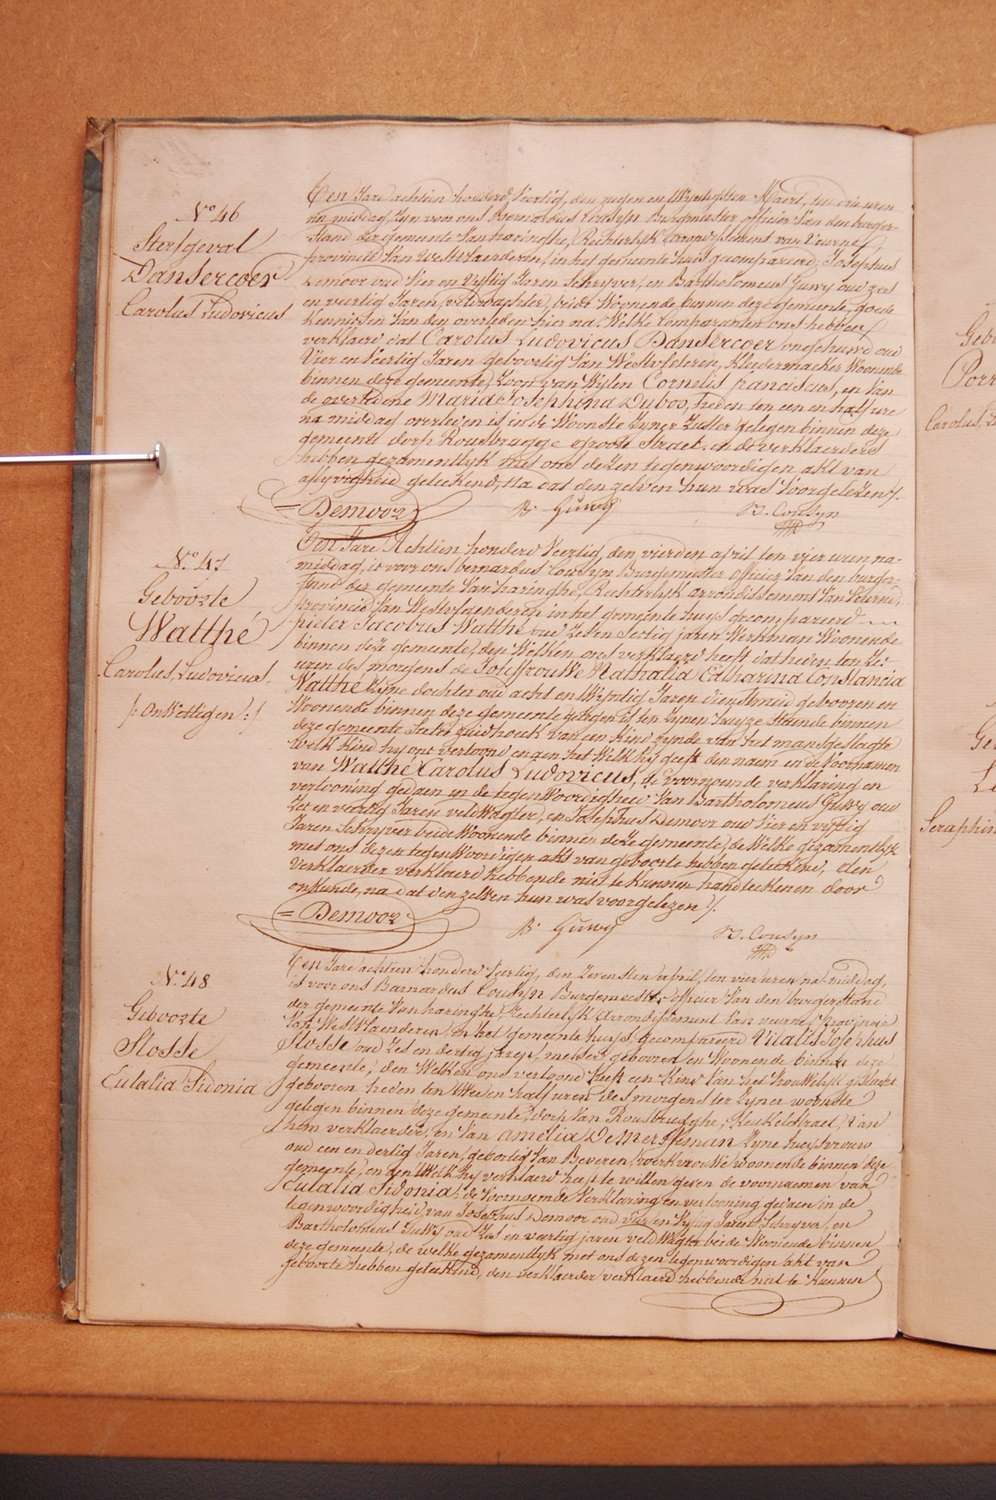 N.º 46
Sterfgeval
Dansercoer
Carolus Ludovicus
Ten Jare achtien honderd veertig, den negen en twentigsten Maert, ten drie uren
na middag zyn voor ons Bernardus Cousyn Burgmeester officier van den burger-
stand der gemeente Vanharinghe, Rechterlyk arrondissement van Veurne,
provincie van Westvlaenderen, in het gemeente huis gecompareerd, Josephus
Demoor oud vier en vyftig Jaren Schryver, en Bartholomeus Guwy oud zes
en veertig Jaren, veldwachter, beide Woonende binnen deze gemeente, goede
kennissen van den overleden hier na. Welke Comparanten ons hebben
verklaerd dat Carolus Ludovicus Dansercoer ongehuwd oud
Vier en veertig Jaren geboortig van Westvleteren, Kleedermacker Woonende
binnen deze gemeente, zoon van Wylen Cornelis franciscus, en van
de overledene Maria Josephina Dubos, heden ten een en half ure
na middag overleden is, in de Woonste zyner zuster gelegen binnen deze
gemeente dorp Rousbrugge groote Straet. en de verklaerders
hebben gezamentlyk met ons dezen tegenwoordigen akt van
aflyvigheid geteekend, na dat den zelven hun was Voorgelezen /.
= Demoor B. Guwy B. Cousyn
N.º 47
Geboorte
Watthé
Carolus, Ludovicus,
/: OnWettigen :/
Ten Jare Achtien honderd Veertig, den vierden april ten vier uren na-
middag, is voor ons bernardus Cousyn Burgemeester officier Van den burger-
stand der gemeente Vanharinghe, Rechterlyk arrondissement Van Veurne,
provincie van Westvlaenderen in het gemeente huys gecompareerd
pieter Jacobus Watthé oud Zeven Sestig jaren Werkman Woonende
binnen deze gemeente, den Welken ons verklaerd heeft dat heden ten
uren des morgens de Jouffrouwe Nathalia Catharina Constancia
Watthé Zyne dochter oud acht en twentig Jaren dienstmeid gebooren en
Woonende binnen deze gemeente gelegen is ten zynen huyze staende binnen
deze gemeente suster zuidhoek van een Kind zynde van het manlyk geslagte
welk Kind hy ons vertoond en aen het Welk hy geeft den naem en de voornamen
van Watthé Carolus Ludovicus, de voornoemde verklaring en
vertooning gedaen in de tegenWoordigheid Van Bartholomeus Guwy oud
Zes en veertig Jaren veldWagter, en Josephus Demoor oud Vier en vyftig
Jaren Schryver beide Woonende binnen deze gemeente, de Welke gezamentlyk
met ons dezen tegenWoordigen akt van geboorte hebben geteekend, den
Verklaerder verklaerd hebbende niet te kunnen handteekenen door
onkunde, na dat den zelven hun was voorgelezen /.
= Demoor B. Guwy B. Cousyn
N.º 48
Geboorte
Slosse
Eulalia Sidonia
Ten Jare achtien honderd veertig, den Zevensten april, ten vier uren na middag,
is voor ons Barnardus Cousyn Burgemeester officier Van den burgerstand
der gemeente Vanharinghe, Rechterlyk Arrondissement Van Veurne, Provincie
Van Westvlaenderen in het gemeente huys gecompareerd Vitalis Josephus
Slosse oud zes en dertig jaren, metser, gebooren en Woonende binnen deze
gemeente, den Welken ons vertoond heeft een Kind Van het Vrouwelyk geslacht
gebooren heden ten twee en half uren des morgens ter zyner woonste
gelegen binnen deze gemeente, dorp Van Rousbrugghe, Keukelstraet, Van
hem verklaerder, en Van Amelia Demersseman Zyne huysvrouw
oud een en dertig Jaren, geboortig Van Beveren, werkvrouwe woonende binnen deze
gemeente, en aen Welk Hy verklaerd heeft te willen geven de voornamen van
Eulalia Sidonia, de Voornoemde Verklaring en vertooning gedaen in de
tegenwoordigheid van Josephus Demoor oud Vier en Vyftig Jaren Schryver, en
Bartholomeus Guwy oud Zes en veertig jaren veldWagter beide Woonende binnen
deze gemeente, de welke gezamentlyk met ons dezen tegenwoordigen akt van
geboorte hebben geteekend, den verklaerder verklaerd hebbende niet te kunnen
Carolus, L
Seraphin